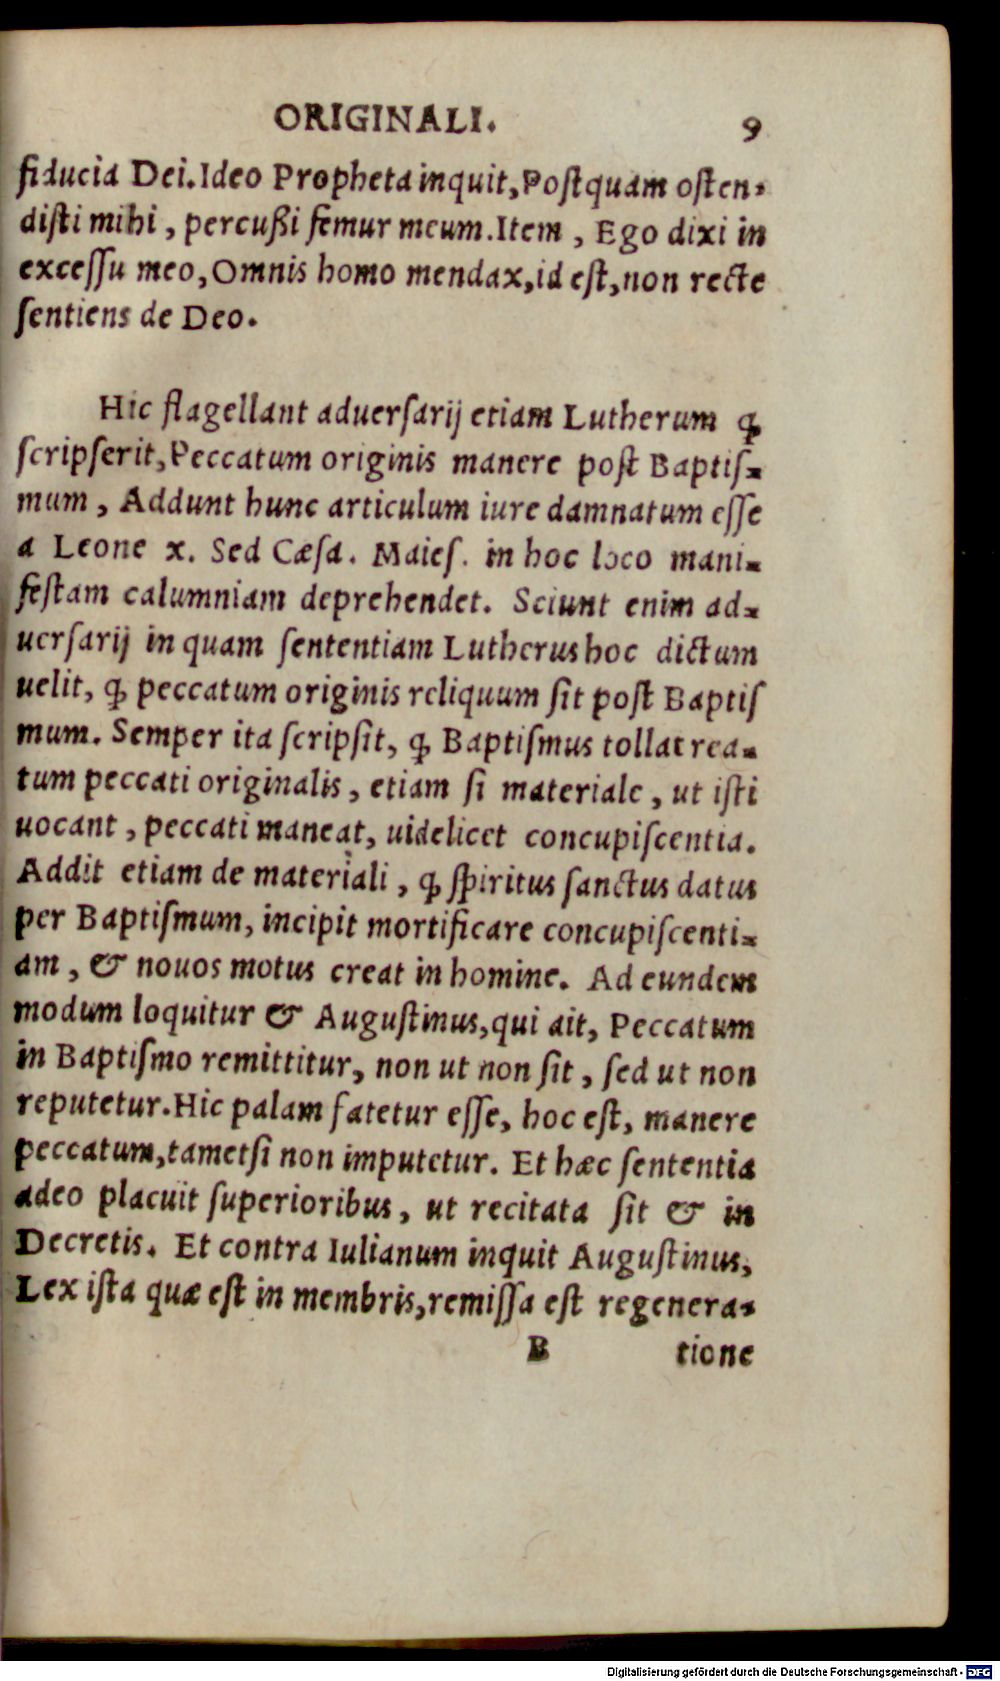 ORIGINALI. 9
fiducia Dei. Ideo Propheta inquit, Poſtquam oſten-
diſti mihi, percußi femur meum. Item, Ego dixi in
exceſſu meo, Omnis homo mendax, id eſt, non recte
ſentiens de Deo.
Hic flagellant aduerſarij etiam Lutherum ꝙ
ſcripſerit, Peccatum originis manere poſt Baptiſ-
mum, Addunt hunc articulum iure damnatum eſſe
a Leone x. Sed Cæſa. Maieſ. in hoc loco mani-
feſtam calumniam deprehendet. Sciunt enim ad-
uerſarij in quam ſententiam Lutherus hoc dictum
uelit, ꝙ peccatum originis reliquum ſit poſt Baptiſ
mum. Semper ita ſcripſit, ꝙ Baptiſmus tollat rea-
tum peccati originalis, etiam ſi materiale, ut iſti
uocant, peccati maneat, uidelicet concupiſcentia.
Addit etiam de materiali, ꝙ ſpiritus ſanctus datus
per Baptiſmum, incipit mortificare concupiſcenti-
am, & nouos motus creat in homine. Ad eundem
modum loquitur & Auguſtinus, qui ait, Peccatum
in Baptiſmo remittitur, non ut non ſit, ſed ut non
reputetur. Hic palam fatetur eſſe, hoc eſt, manere
peccatum, tametſi non imputetur. Et hæc ſententia
adeo placuit ſuperioribus, ut recitata ſit & in
Decretis. Et contra Iulianum inquit Auguſtinus,
Lex iſta quæ eſt in membris, remiſſa eſt regenera-
B tione
Digitalisierung gefördert durch die Deutsche Forschungsgemeinschaft - DFG